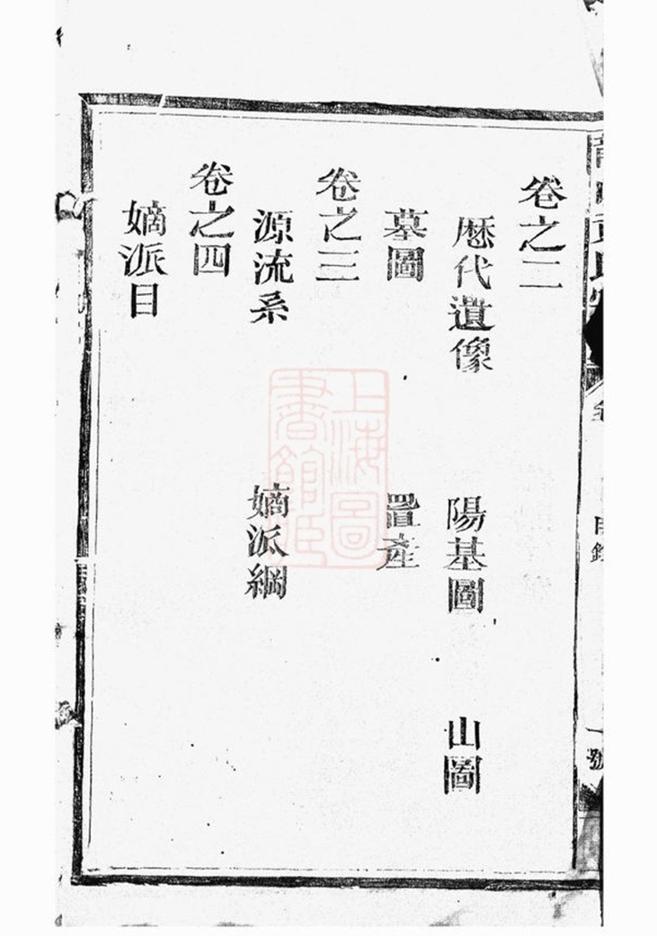 卷之二
歷代遺像　陽基圖　山圖
墓圖　置產
卷之三
源流系　嫡派綱
卷之四
嫡派目
上海圖
書館藏
目錄
一號